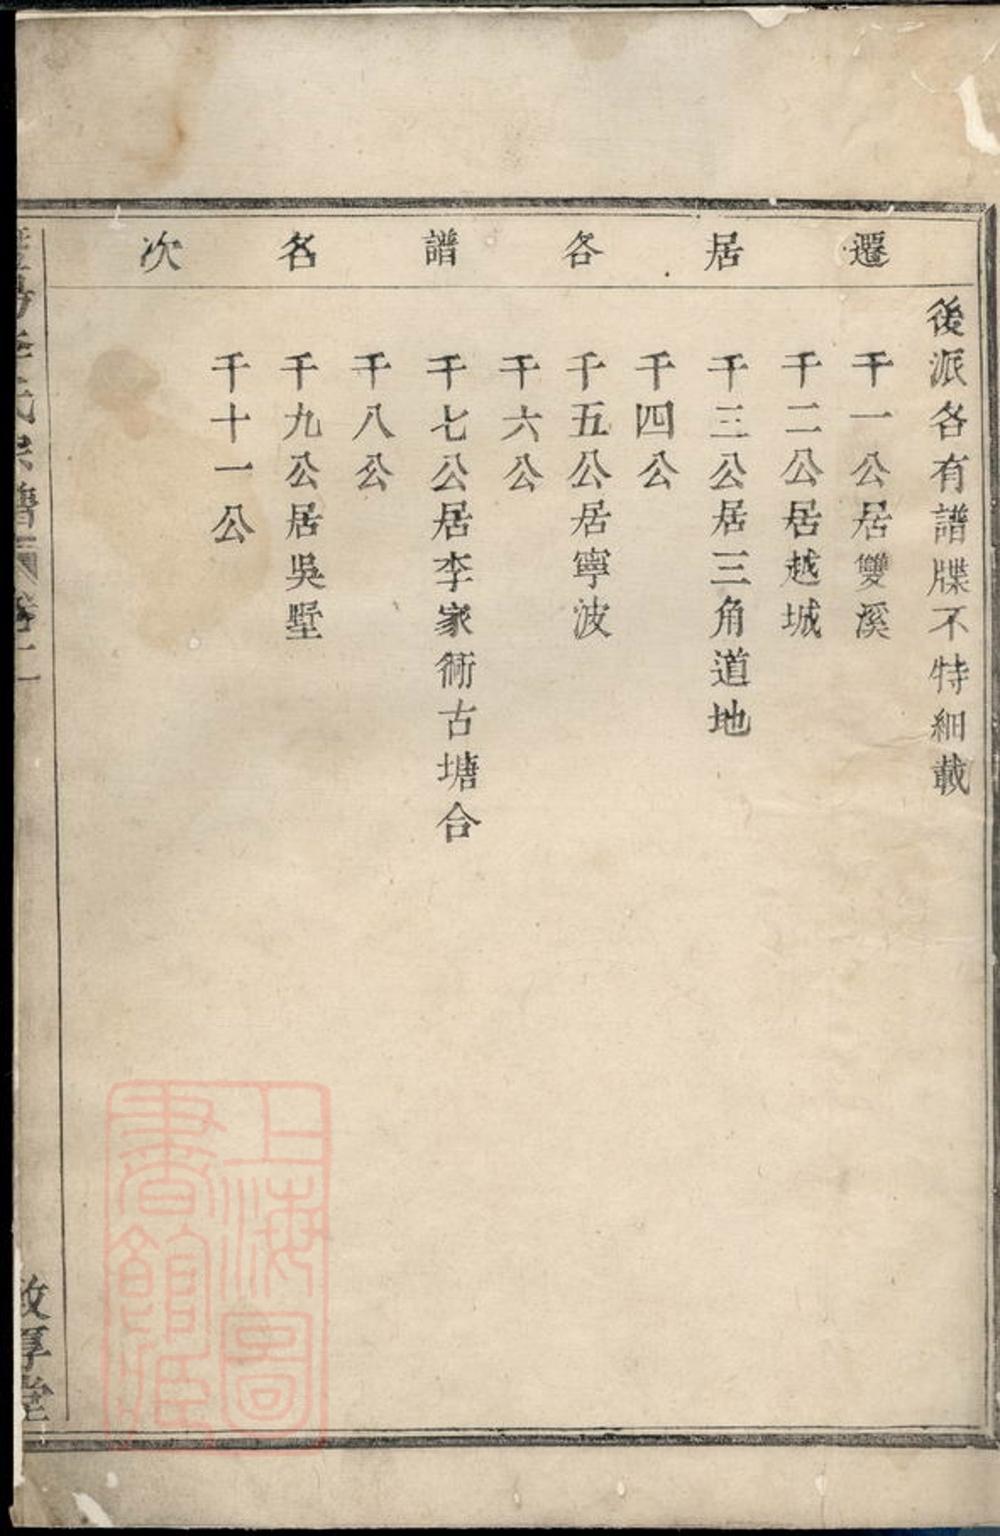 遷居各譜名次
後派各有譜牒不特細載
千一公居雙溪
千二公居越城
千三公居三角道地
千四公
千五公居寧波
千六公
千七公居李家衖古塘合
千八公
千九公居吳墅
千十一公
上海圖書館藏